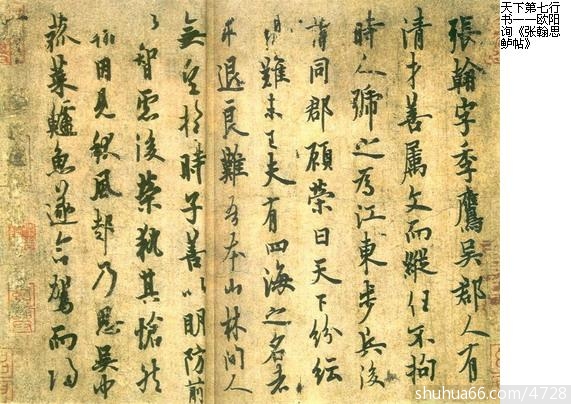 張翰字季鷹吳郡人有
清才善屬文而縱任不拘
時人號之為江東步兵後
謂同郡顧榮曰天下紛紜
禍難未已夫有四海之名者
求退良難吾本山林間人
無望於時子善以明防前
以智慮後榮執其愴然
翰因見秋風起乃思吳中
菰菜鱸魚遂命駕而歸
天下第七行
书——欧阳
询《张翰思
鲈帖》
shuhua66.com/4728